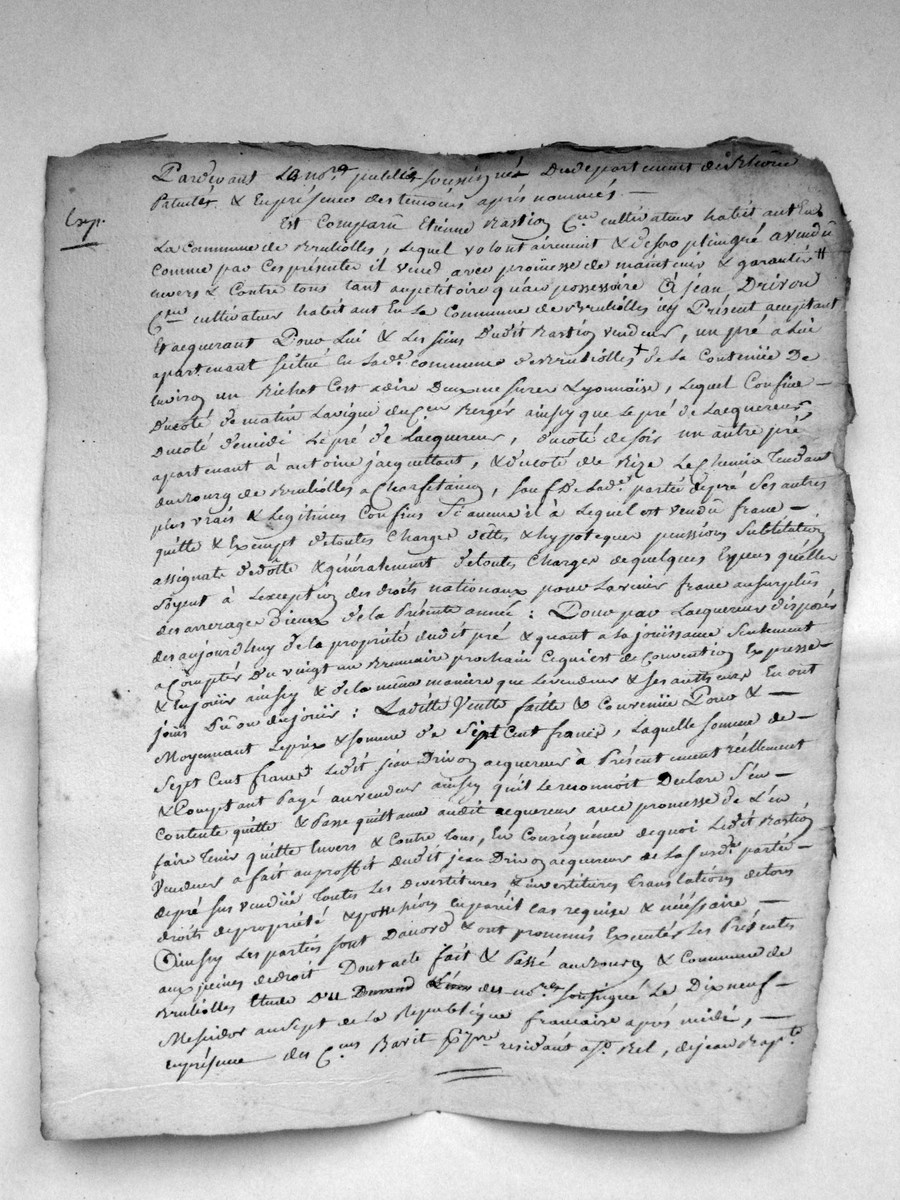 Pardevant Le no.re public soussigné Du departement du Rhône
Patenté & En présence des temoins après nommés —
Exp.
Est Comparu Etiene Bastion C.en cultivateur habitant En
La Commune de Brulliolles, Lequel volontairement & de son plein gré a vendu
comme par Ces presentes il vend avec promesse de maintenir & garantir
envers & Contre tous tant au petitoire qu'au possessoire à jean Drivon
C.en cultivateur habitant En La Commune de Brulliolles icy Présent acceptant
Et acquerant Pour Lui & Les siens Dudit Bastion vendeur, un pré a Lui
apartenant scitué en Lad.e commune de Brulliolles + de La Contenüe De
Environ un Bichet Cest adire Deux mesures Lyonnoise, Lequel Confine —
Ducoté de matin La vigne du C.en Berger ainsy que Le pré de Lacquereur
Ducoté de midi Le pré de Lacquereur, du coté de soir un autre pré
apartenant à antoine jacquettant, & du coté de Bize Le Chemin Tendant
du Bourg de Brulliolles a , sauf De Lad.e partie de pré Ses autres
plus vrais & Legitimes Confins Si aucun il à Lequel est vendu franc —
quitte & Exempt de toutes Charges dettes & hypoteques pensions Substitution
assignats de dotte & généralement de toutes Charges de quelques Especes qu'elles
Soyent à Lexception des droits nationaux pour Lavenir franc au surplus
des arrerages d'iceux de la Présente année : Pour par Lacquereur disposer
des aujourdhuy de la propriété dudit pré & quant a La joüissance Seulement
a Compter Du vingt un Brumaire prochain Ce qui est de Convention Expresse
& En joüir ainsy & de la même maniere que Le vendeur & ses autheurs En ont
joüis Dû ou du joüir : Ladite Vente faitte & Convenüe Pour & —
Moyennant Le prix & somme de Sept Cent francs, Laquelle somme de
Sept Cent francs Ledit jean Drivon acquereur à Présentement réellement
& Comptant Payé au vendeur ainsy qu'il Le reconnoit Declare S'en —
contente quitte & Passe quittance audit acquereur avec promesse de L'en
faire tenir quitte Envers & Contre tous, En Conséquence de quoi Ledit Bastion
Vendeur a fait au proffit dudit jean Drivon acquereur de La susd.e partie
de pré sus vendüe toutes Les devestitures & investitures translations de tous
droits de propriété & possessions en pareil cas requise & néssaire —
Ainsy Les parties sont Daccord & ont prommis Executer Les Présentes
aux peines de droit Dont acte fait & Passé au Bourg & Commune de
Brulliolles Etude no.re soussigné Le Dix neuf
Messidor an Sept de La Republique francaise après midi, —
en présence des C.ens résidant a S.t Bel, de jean Bap.te